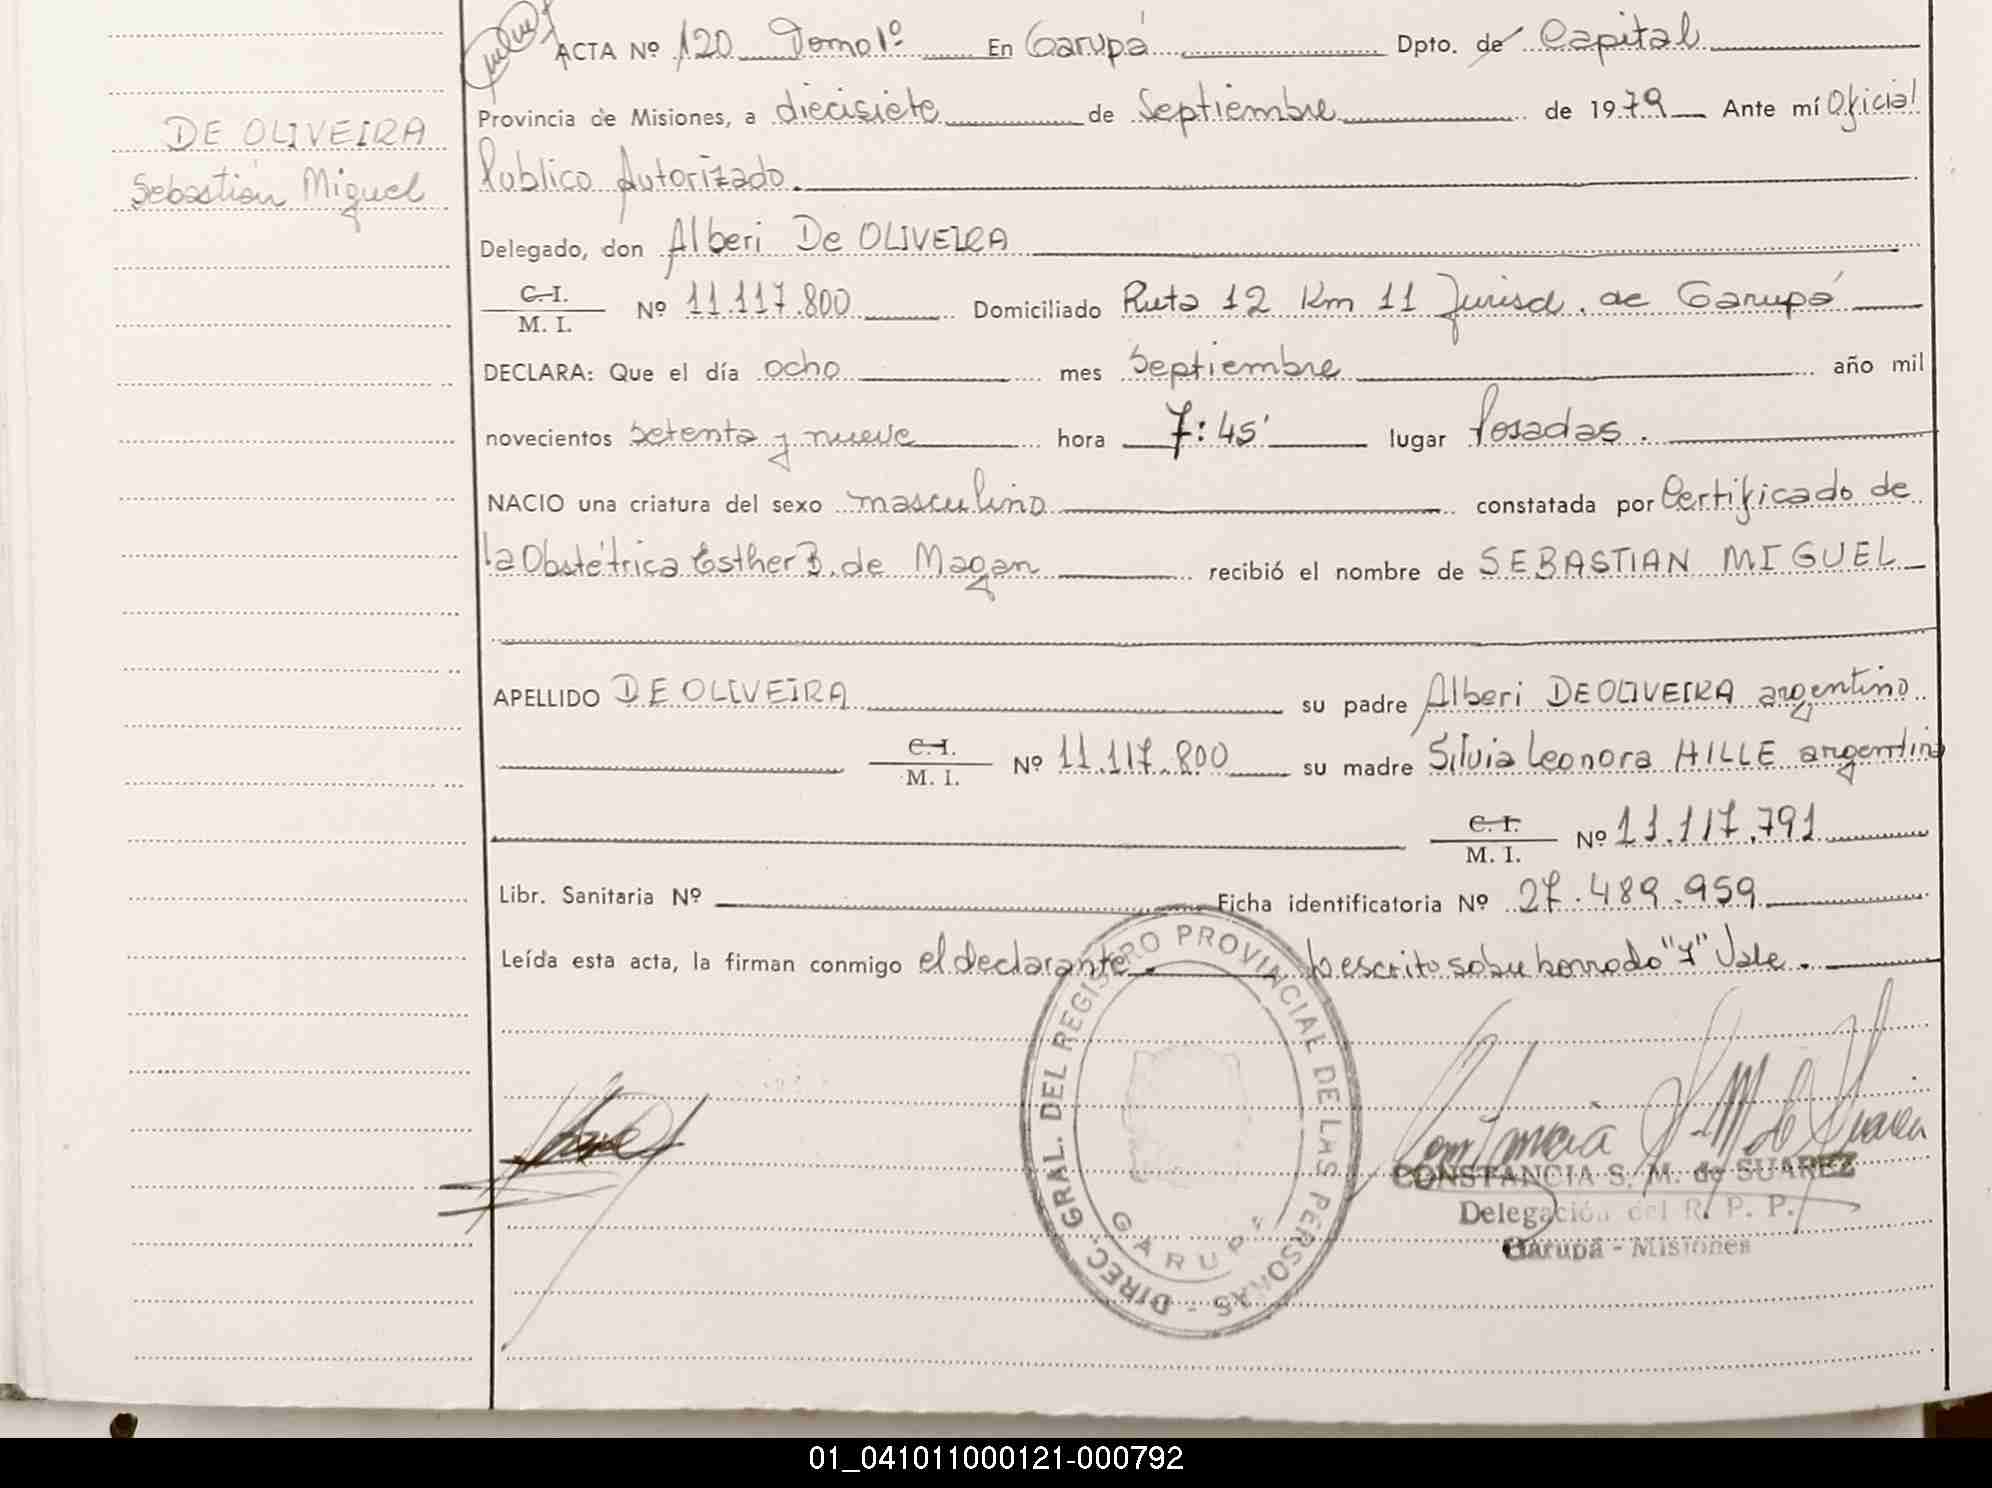 ACTA Nº 120 Tomo 1º En Garupá Dpto. de Capital
Provincia de Misiones, a diecisiete de Septiembre de 1979 Ante mí Oficial
DE OLIVEIRA
Sebastián Miguel
Publico Autorizado.
Delegado, don Alberi De OLIVEIRA
C. I.
M. I. Nº 11.117.800 Domiciliado Ruta 12 Km 11 Jurisd. de Garupá
DECLARA: Que el día ocho mes Septiembre año mil
novecientos setenta y nueve hora 7:45' lugar Posadas.
NACIO una criatura del sexo masculino constatada por Certificado de
la Obstétrica Esther B. de Magan recibió el nombre de SEBASTIAN MIGUEL
APELLIDO DE OLIVEIRA su padre Alberi DE OLIVEIRA argentino
C. I.
M. I. Nº 11.117.800 su madre Silvia Leonora HILLE argentina
C. I.
M. I. Nº 11.117.791
Libr. Sanitaria Nº Ficha identificatoria Nº 27.489.959
Leída esta acta, la firman conmigo el declarante. Lo escrito sobre borrado "7" Vale.
DIREC. GRAL. DEL REGISTRO PROVINCIAL DE LAS PERSONAS -
GARUPÁ
CONSTANCIA S. M. de SUAREZ
Delegación del R. P. P.
Garupá - Misiones
01_041011000121-000792